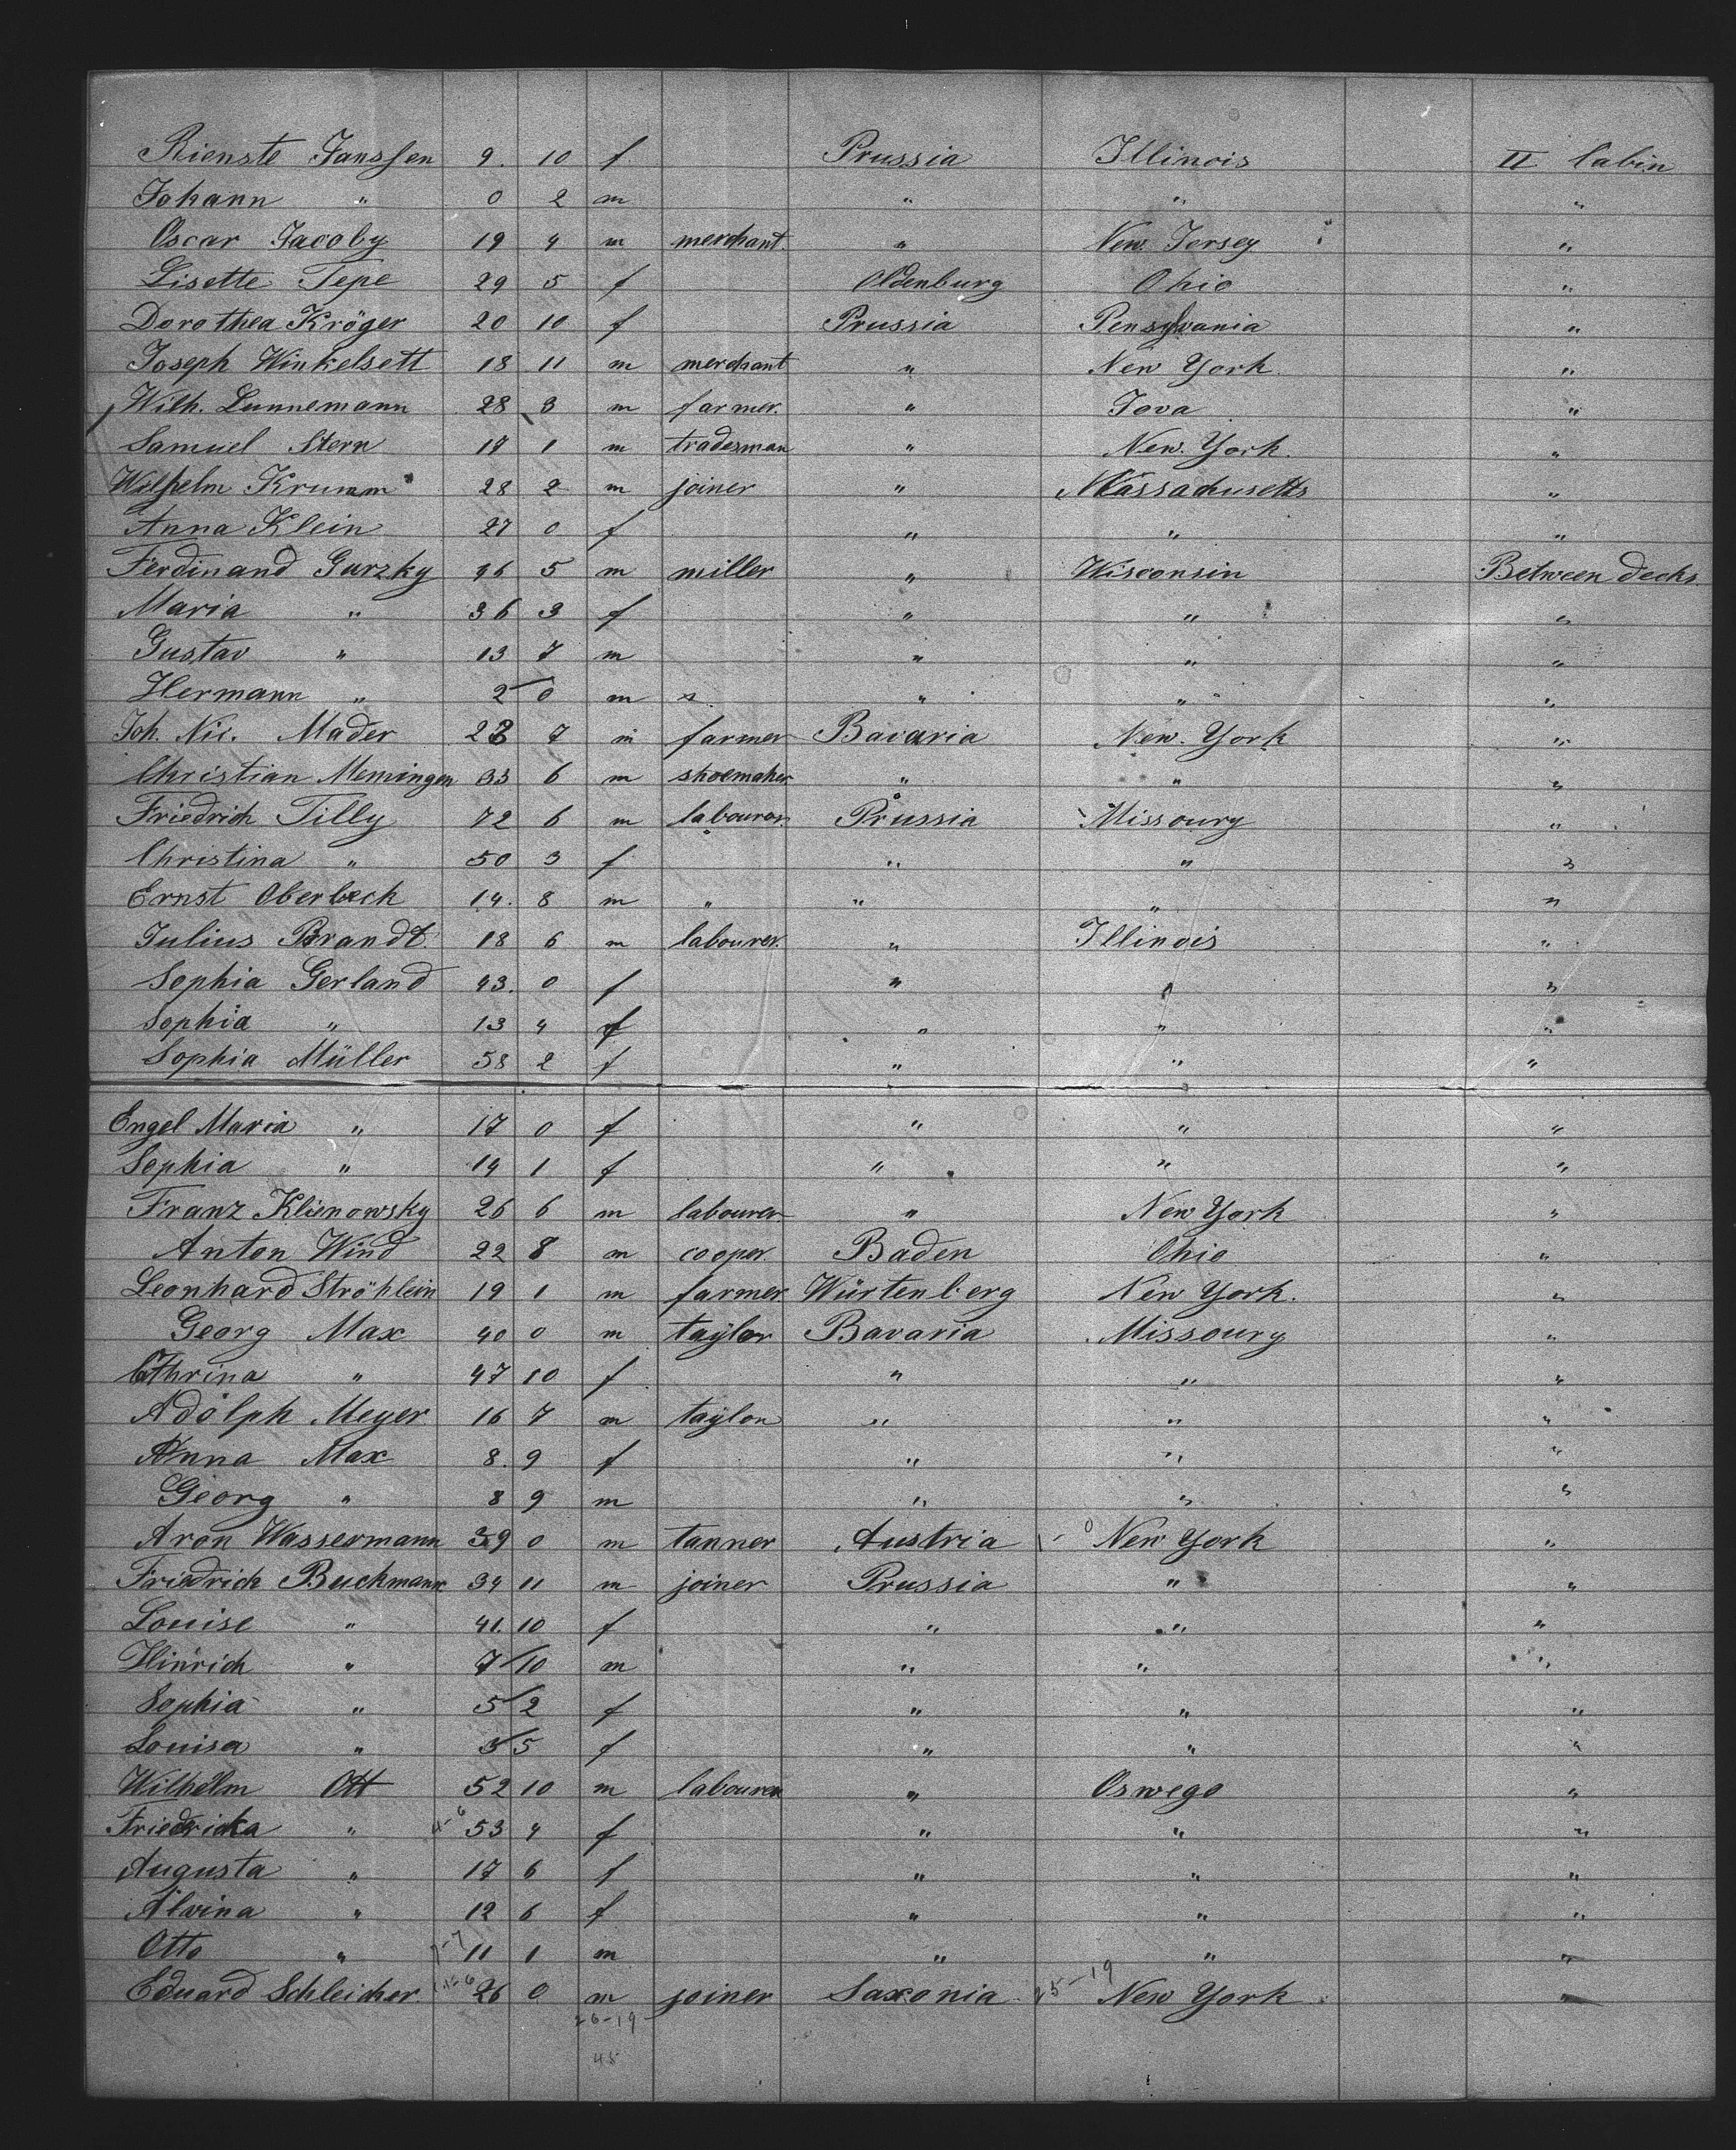 Rienste Janssen 9. 10 f Prussia Illinois II Cabin
Johann " 0 2 m " " "
Oscar Jacoby 19 4 m merchant " New Jersey "
Lisette Tepe 29 5 f Oldenburg Ohio "
Dorothea Kröger 20 10 f Prussia Pensylvania "
Joseph Winkelsett 18 11 m merchant " New York "
Wilh. Lunnemann 28 3 m farmer. " Iova "
Samuel Stern 1 m tradesman " New York. "
Wilhelm Krumm 28 2 m joiner " Massachusetts "
Anna Klein 27 0 f " " "
Ferdinand Gurzky 46 5 m miller " Wisconsin Between decks
Maria " 36 3 f " " "
Gustav " 13 7 m " " "
Hermann " 2 0 m " " "
Joh. Nic. Mader 7 m farmer Bavaria New York "
Christian Memingen 33 6 m shoemaker " " "
Friedrich Tilly 72 6 m labourer Prussia Missoury "
Christina " 50 3 f " " "
Ernst Oberbeck 14. 8 m " " " "
Julius Brandt 18 6 m labourer " Illinois "
Sophia Gerland 43. 0 f " " "
Sophia " 13 4 f " " "
Sophia Müller 58 2 f " " "
Engel Maria " 17 0 f " " "
Sophia " 14 1 f " " "
Franz Klienowsky 26 6 m labourer " New York "
Anton Wind 22 8 m cooper Baden Ohio "
Leonhard Ströhlein 19 1 m farmer Würtenberg New York. "
Georg Max 40 0 m taylor Bavaria Missoury "
Cthrina " 47 10 f " " "
Adolph Meyer 16 7 m taylor " " "
Anna Max 8. 9 f " " "
Georg " 8 9 m " " "
Aron Wassermann 39 0 m tanner Austria New York "
Friedrich Buckmann 34 11 m joiner Prussia " "
Louise " 41. 10 f " " "
Hinrich " 7 10 m " " "
Sophia " 5 2 f " " "
Louisa " 3 5 f " " "
Wilhelm Ott 52 10 m labourer " Oswego "
Friedricka " 53 4 f " " "
Augusta " 17 6 f " " "
Alvina " 12 6 f " " "
Otto " 11 1 m " " "
Eduard Schleicher 26 0 m joiner Saxonia 25-19 New York "
26-19
45